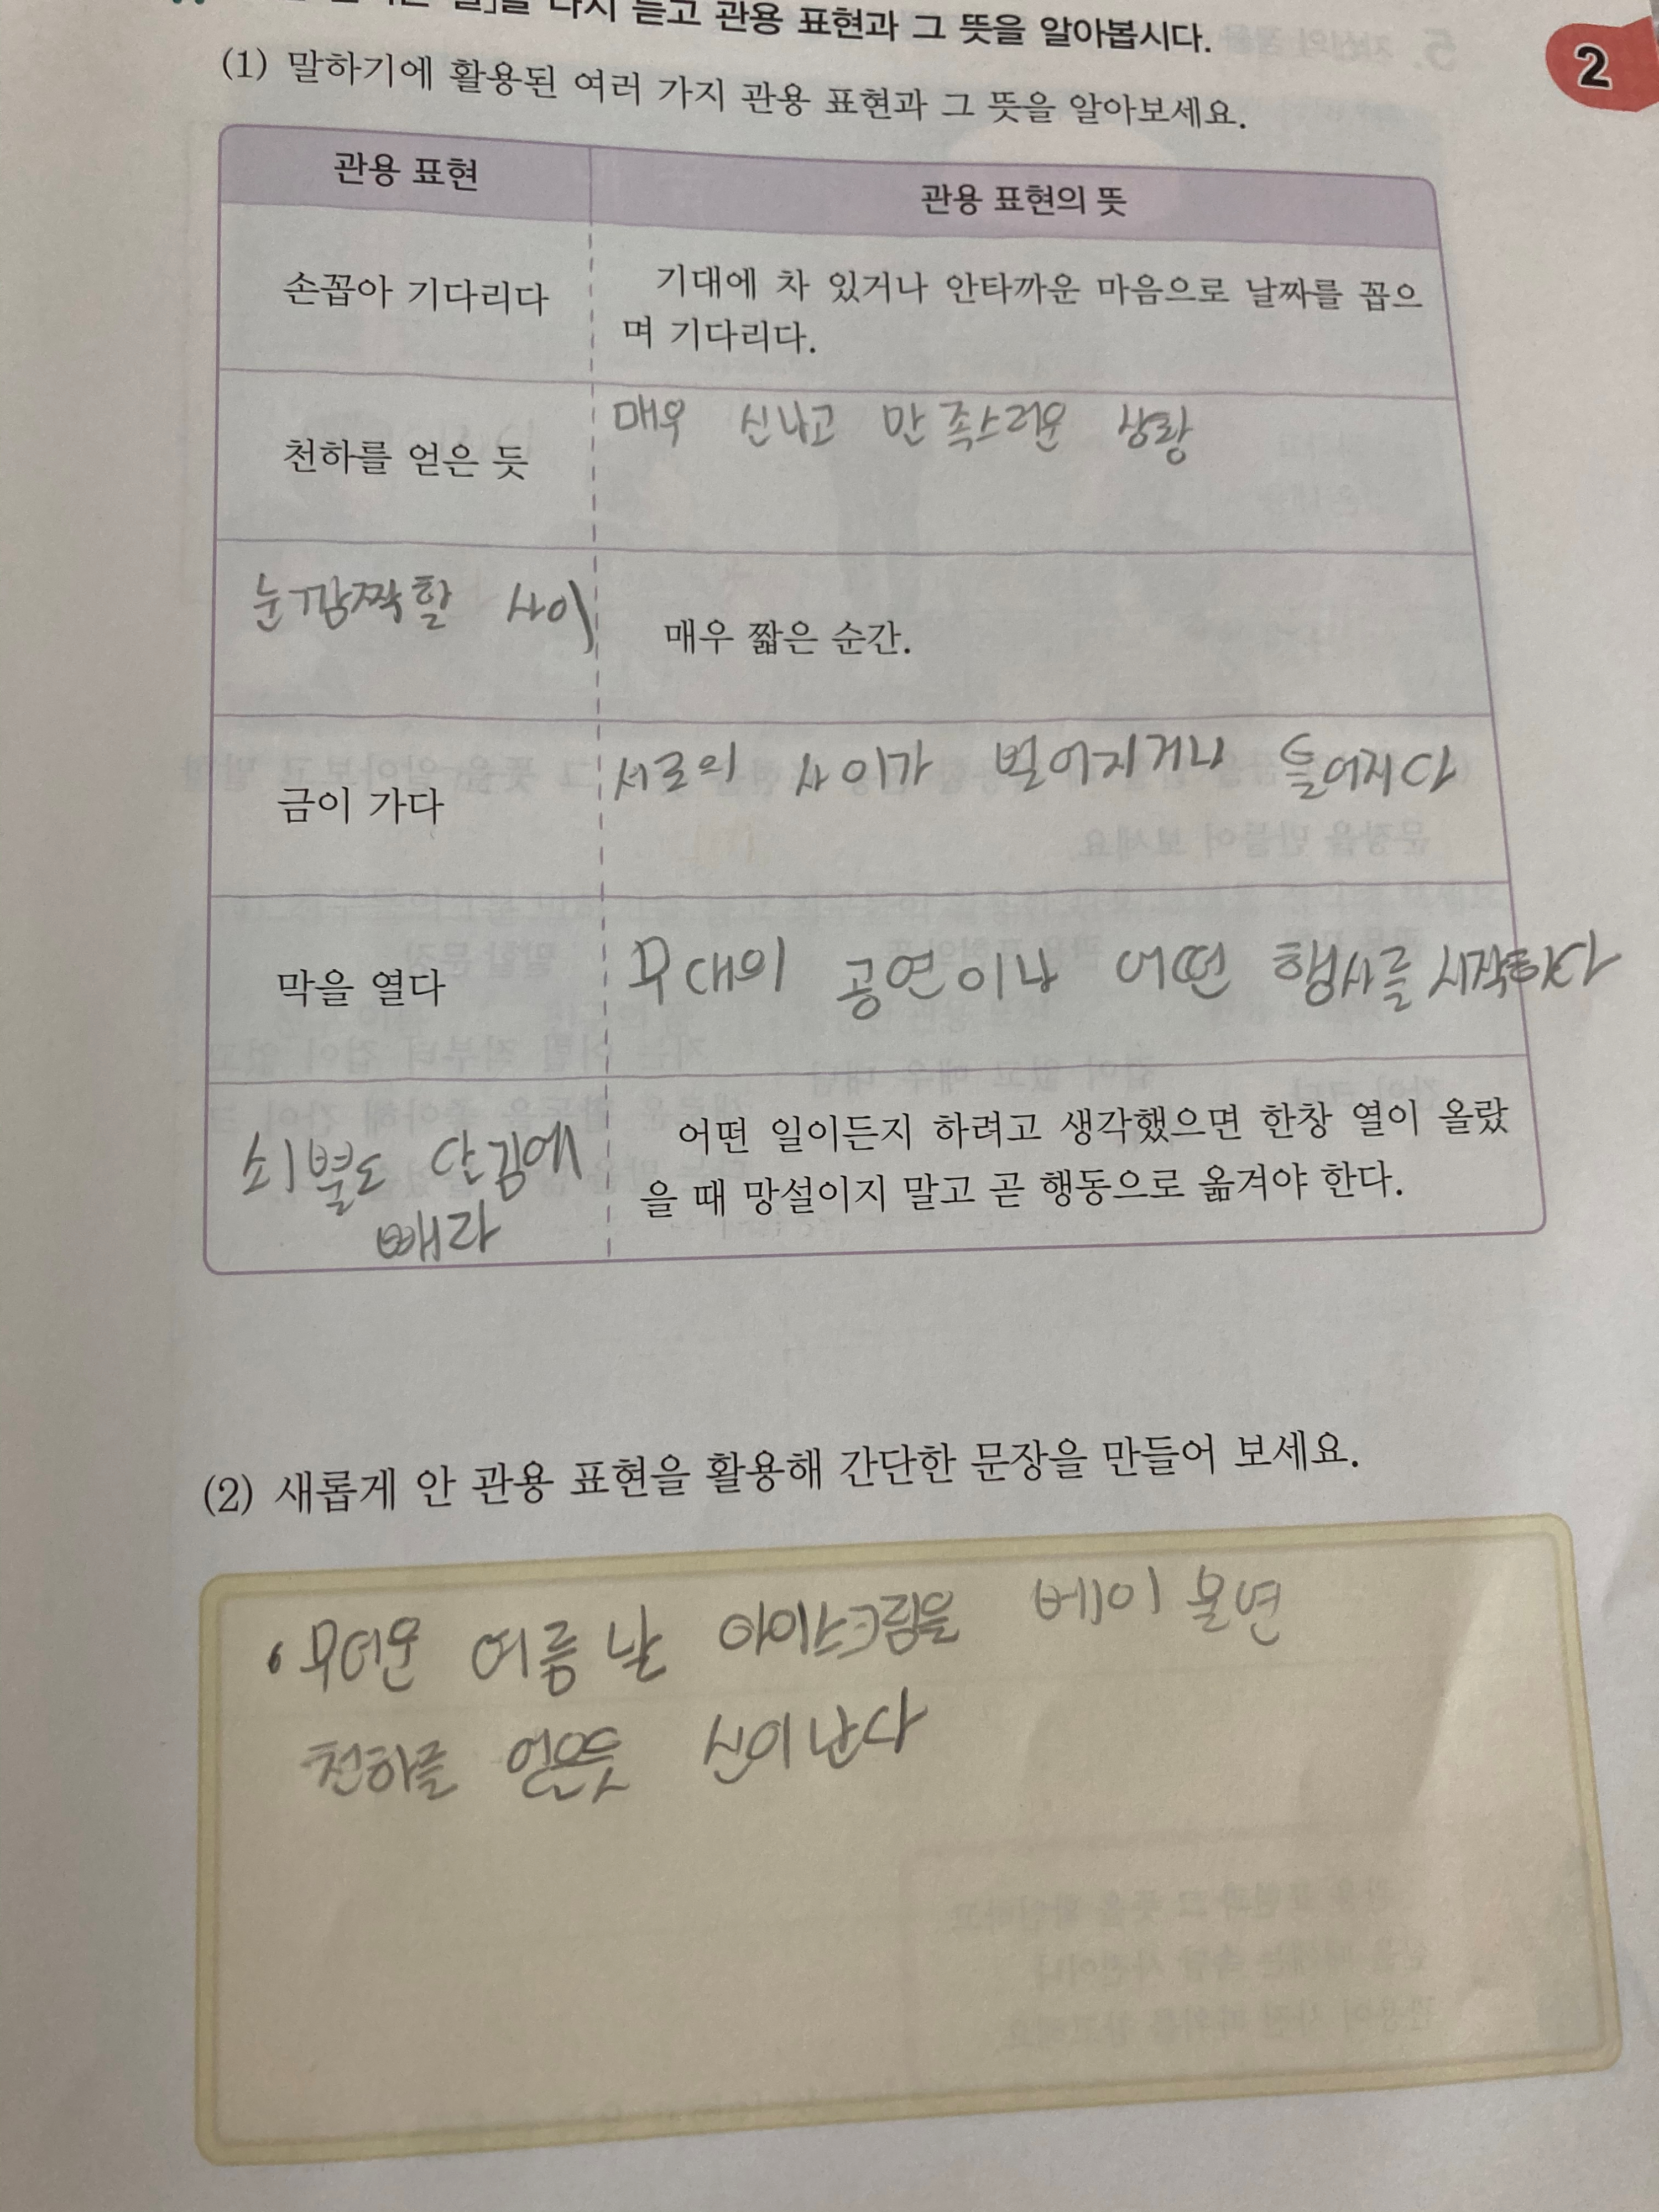 다시 듣고 관용 표현과 그 뜻을 알아봅시다.
2
(1) 말하기에 활용된 여러 가지 관용 표현과 그 뜻을 알아보세요.
관용 표현
관용 표현의 뜻
손꼽아 기다리다
기대에 차 있거나 안타까운 마음으로 날짜를 꼽으
며 기다리다.
천하를 얻은 듯
매우 신나고 만족스러운 상황
눈깜짝할 사이
매우 짧은 순간.
금이 가다
서로의 사이가 벌어지거나 틀어지다
막을 열다
무대의 공연이나 어떤 행사를 시작하다
쇠뿔도 단김에
빼라
어떤 일이든지 하려고 생각했으면 한창 열이 올랐
을 때 망설이지 말고 곧 행동으로 옮겨야 한다.
(2) 새롭게 안 관용 표현을 활용해 간단한 문장을 만들어 보세요.
• 무더운 여름날 아이스크림을
천하를 얻은듯 신이난다